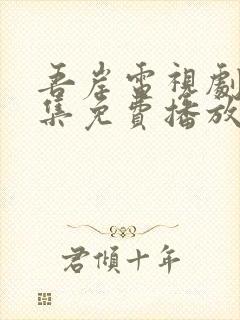 吾岸電視劇
集免費播放
君傾十年